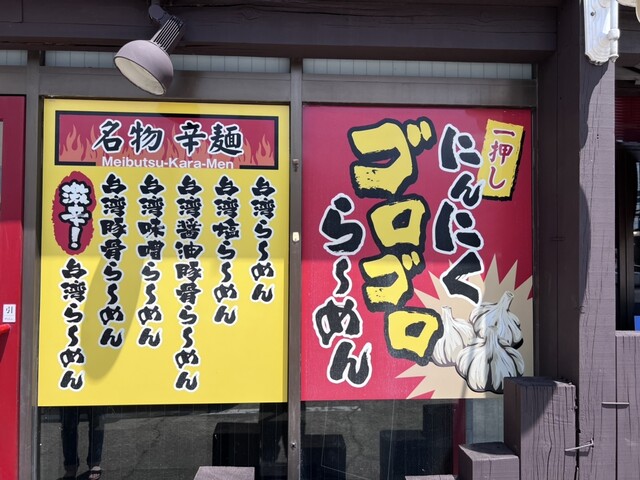 名物 辛麺
Meibutsu-Kara-Men
台湾らーめん
台湾塩らーめん
台湾醤油豚骨らーめん
台湾味噌らーめん
台湾豚骨らーめん
激辛!
台湾らーめん
一押し
にんにく
ゴロゴロ
らーめん
引